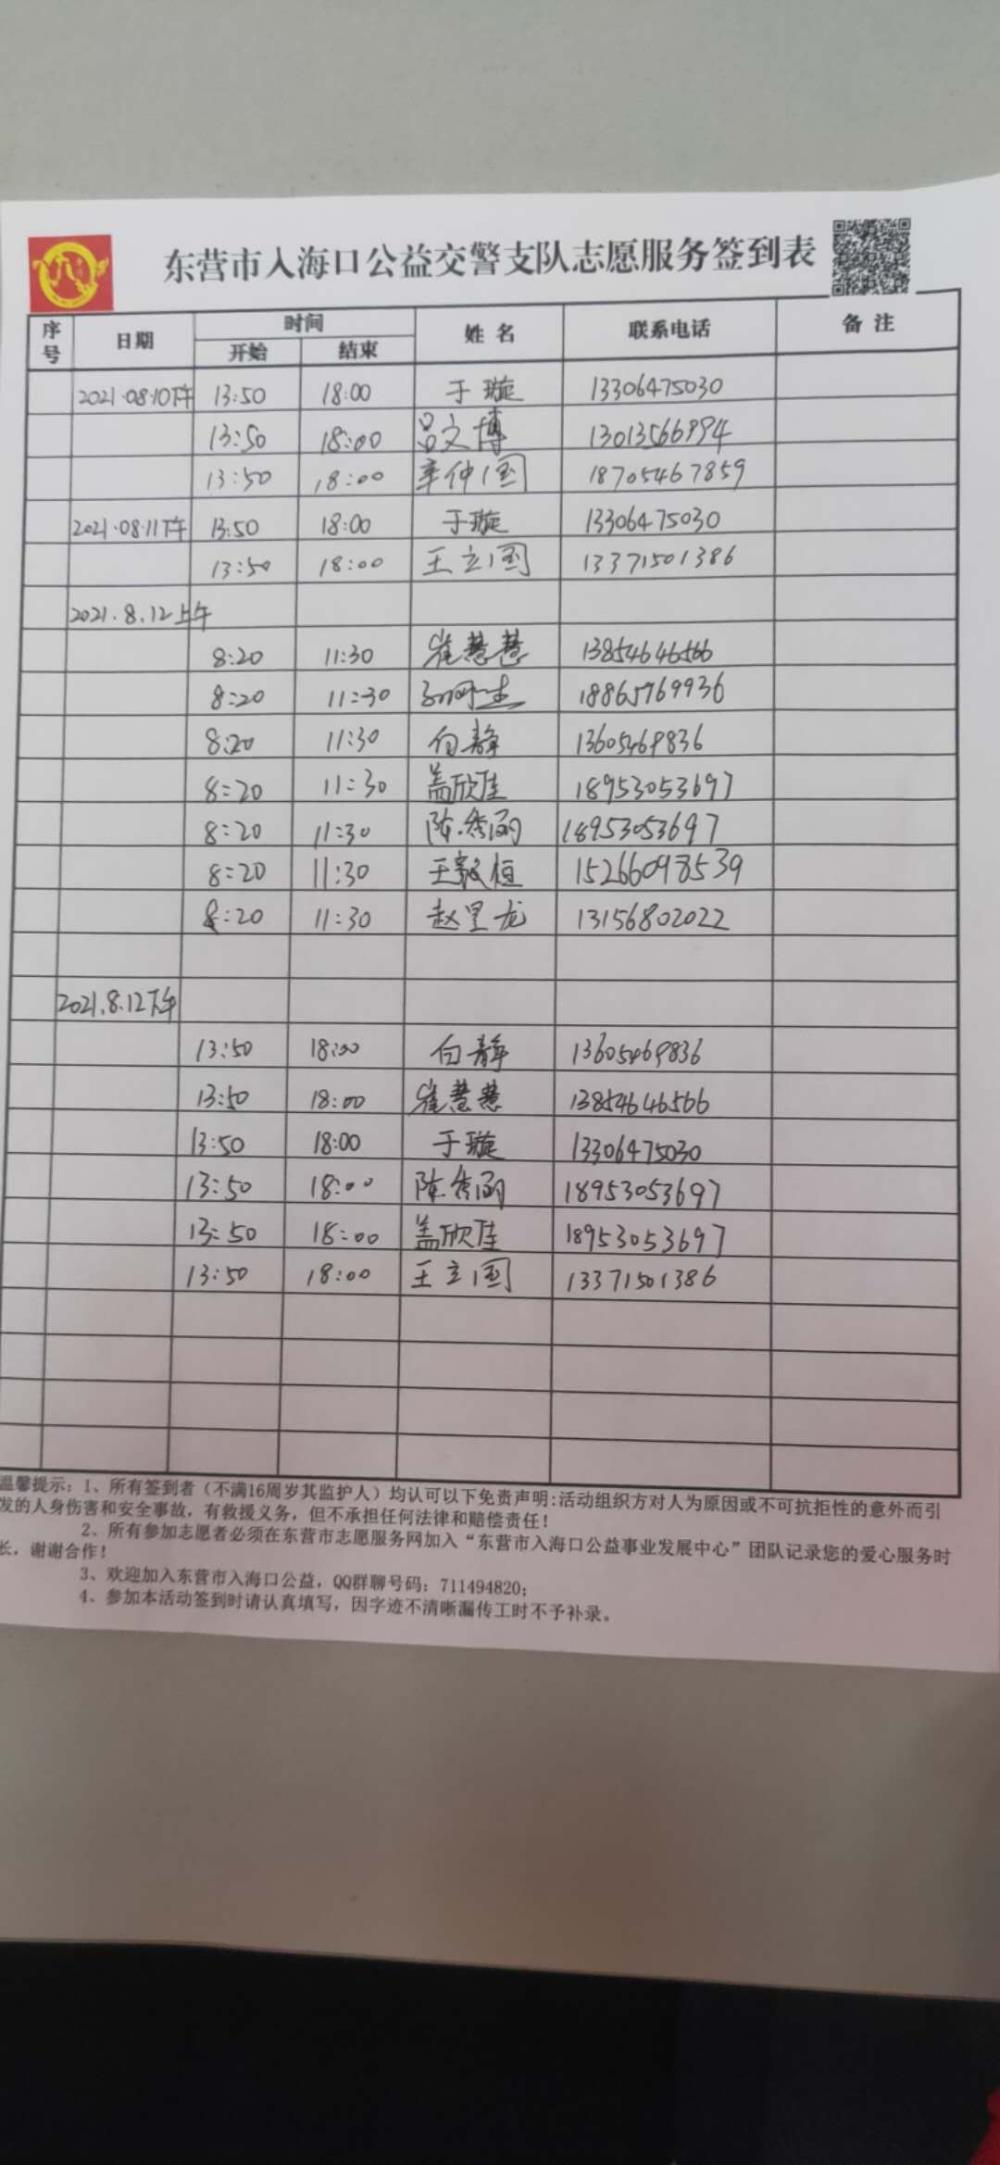 东营市入海口公益交警支队志愿服务签到表
序号 日期 时间 姓名 联系电话 备注
开始 结束
2021.08.10下午 13:50 18:00 于璇 13306475030
13:50 18:00 吕文博 13013566994
13:50 18:00 辛仲国 18705467859
2021.08.11下午 13:50 18:00 于璇 13306475030
13:50 18:00 王立国 13371501386
2021.8.12上午
8:20 11:30 崔慧慧 13854646566
8:20 11:30 18865769936
8:20 11:30 白静 13605469836
8:20 11:30 盖欣佳 18953053697
8:20 11:30 陈秀涵 18953053697
8:20 11:30 王毅恒 15266098539
8:20 11:30 赵星龙 13156802022
2021.8.12下午
13:50 18:00 白静 13605469836
13:50 18:00 崔慧慧 13854646566
13:50 18:00 于璇 13306475030
13:50 18:00 陈秀涵 18953053697
13:50 18:00 盖欣佳 18953053697
13:50 18:00 王立国 13371501386
温馨提示:1、所有签到者（不满16周岁其监护人）均认可以下免责声明:活动组织方对人为原因或不可抗拒性的意外而引
发的人身伤害和安全事故，有救援义务，但不承担任何法律和赔偿责任！
2、所有参加志愿者必须在东营市志愿服务网加入“东营市入海口公益事业发展中心”团队记录您的爱心服务时
长，谢谢合作！
3、欢迎加入东营市入海口公益，QQ群聊号码：711494820;
4、参加本活动签到时请认真填写，因字迹不清晰漏传工时不予补录。